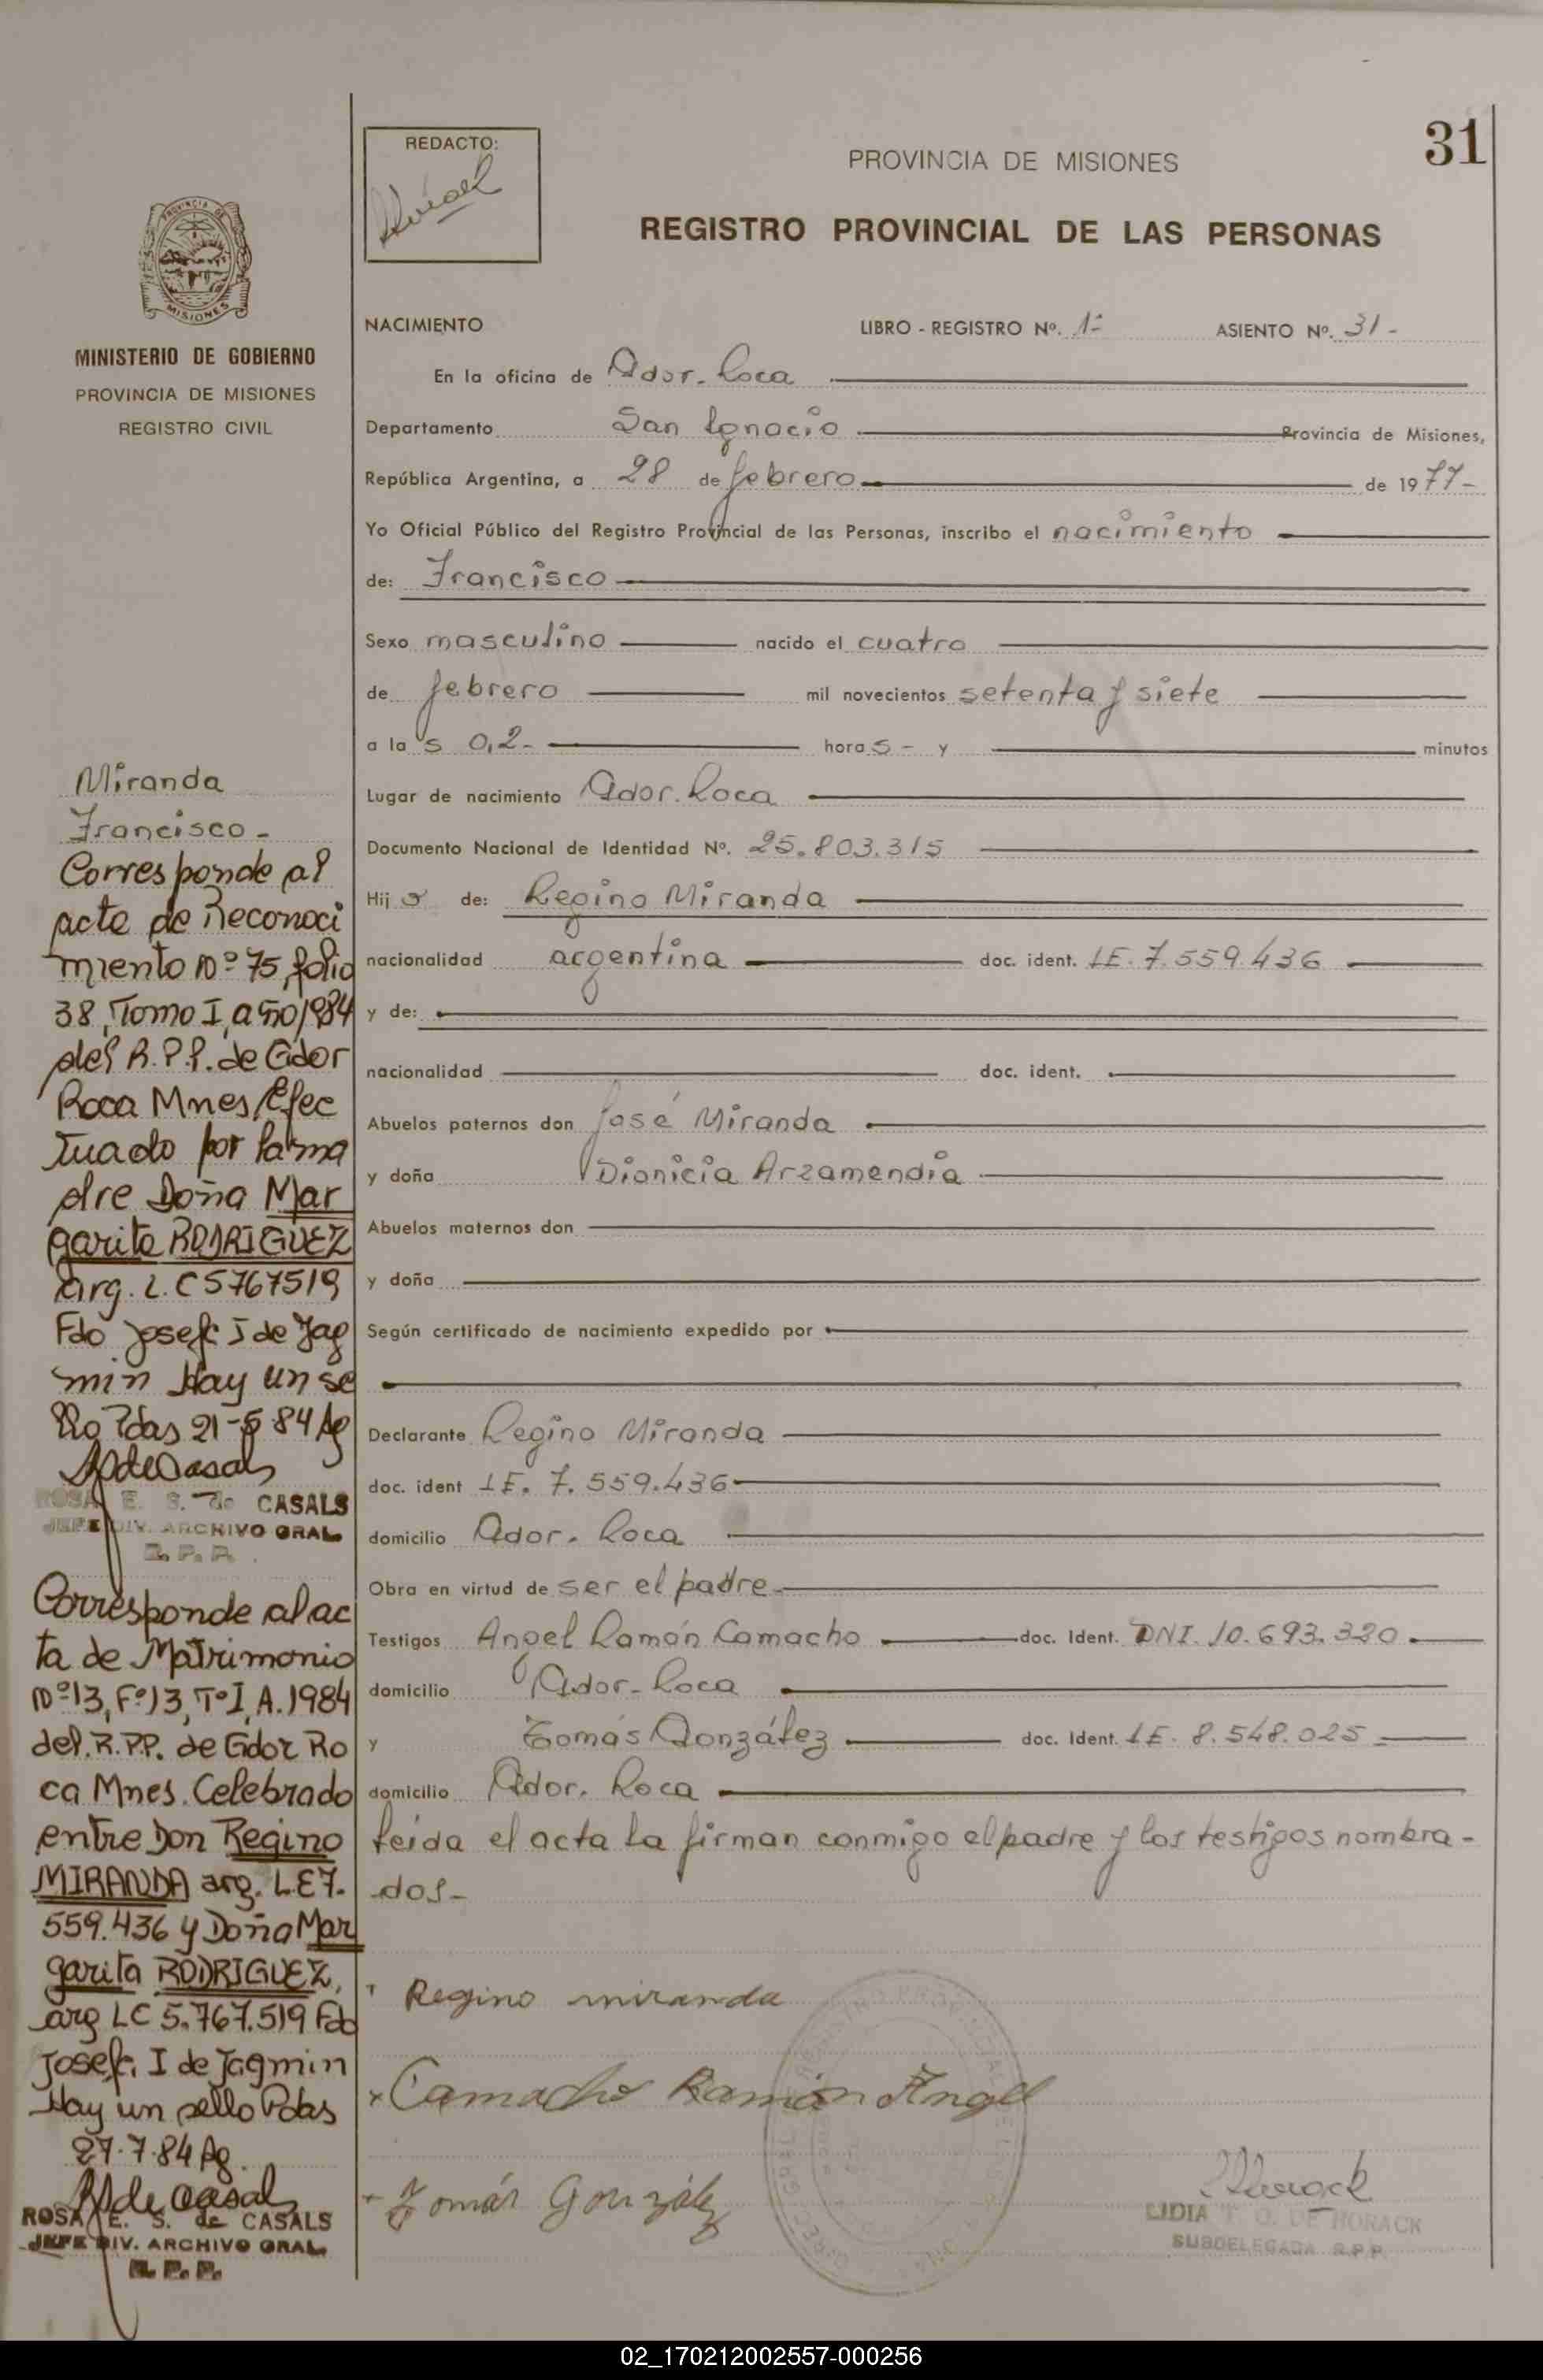 31
REDACTO:
PROVINCIA DE MISIONES
REGISTRO PROVINCIAL DE LAS PERSONAS
PROVINCIA DE
MISIONES
MINISTERIO DE GOBIERNO
PROVINCIA DE MISIONES
REGISTRO CIVIL
NACIMIENTO LIBRO - REGISTRO Nº. 1º ASIENTO Nº. 31-
En la oficina de Gdor. Roca
Departamento San Ignacio Provincia de Misiones,
República Argentina, a 28 de febrero de 1977-
Yo Oficial Público del Registro Provincial de las Personas, inscribo el nacimiento
de: Francisco
Sexo masculino nacido el cuatro
de febrero mil novecientos setenta y siete
a la s 0,2- hora s- y minutos
Lugar de nacimiento Gdor. Roca
Documento Nacional de Identidad Nº. 25.803.315
Hij o de: Regino Miranda
nacionalidad argentina doc. ident. LE. 7.559.436
y de:
nacionalidad doc. ident.
Abuelos paternos don José Miranda
y doña Dionicia Arzamendia
Abuelos maternos don
y doña
Según certificado de nacimiento expedido por
Declarante Regino Miranda
doc. ident LE. 7.559.436
domicilio Gdor. Roca
Obra en virtud de ser el padre
Testigos Angel Ramón Camacho doc. Ident. DNI. 10.693.320
domicilio Gdor. Roca
y Tomás González doc. Ident. LE. 8.548.025
domicilio Gdor. Roca
leída el acta la firman conmigo el padre y los testigos nombra-
dos-
Regino miranda
Camacho Ramón Angel
Tomás González
Horack
LIDIA T. O. DE HORACK
SUBDELEGADA R.P.P.
Miranda
Francisco-
Corresponde al
acta de Reconoci
miento Nº 75, folio
38, Tomo I, año 1984
del R.P.P. de Gdor
Roca Mnes, Efec
tuado por la ma
dre Doña Mar
garita RODRIGUEZ
arg. L.C 5767519
Fdo Josefa I de Jag
min Hay un se
llo Pdas 21-5-84 Ag
RSdeCasals
ROSA E. S. de CASALS
JEFE DIV. ARCHIVO GRAL
R. P. P.
Corresponde al ac
ta de Matrimonio
Nº 13, Fº 13, Tº I, A. 1984
del R.P.P. de Gdor Ro
ca Mnes. Celebrado
entre Don Regino
MIRANDA arg. L.E 7.
559.436 y Doña Mar
garita RODRIGUEZ,
arg LC 5.767.519 Fdo
Josefa I de Jagmin
Hay un sello Pdas
27.7.84 Ag.
RSde Casals
ROSA E. S. de CASALS
JEFE DIV. ARCHIVO GRAL.
R. P. P.
02_170212002557-000256